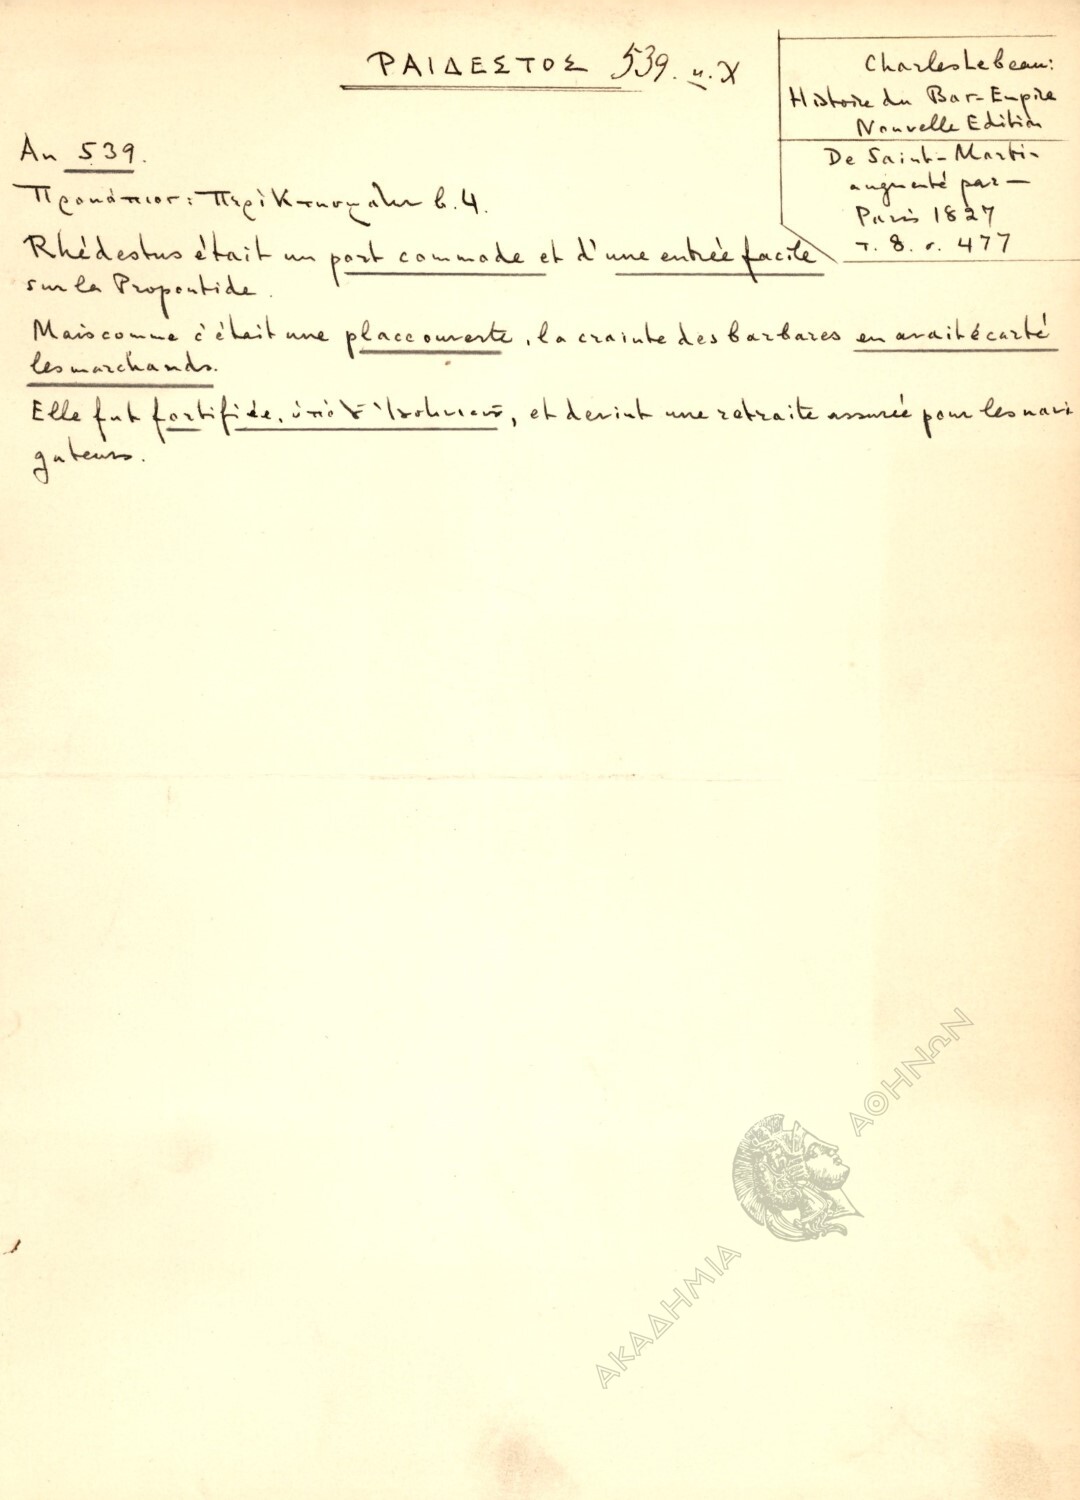 ΡΑΙΔΕΣΤΟΣ 539. μ. Χ
Charles Lebeau:
Histoire du Bas-Empire
Nouvelle Edition
De Saint-Martin
augmenté par —
Paris 1827
τ. 8. σ. 477
An 539.
Προκόπιος: Περὶ Κτισμάτων β. 4.
Rhédestus était un port commode et d'une entrée facile
sur la Propontide.
Mais comme c'était une place ouverte, la crainte des barbares en avait écarté
les marchands.
Elle fut fortifiée, ὑπὸ τοῦ Ἰουστινιανοῦ, et devint une retraite assurée pour les navi
gateurs.
ΑΚΑΔΗΜΙΑ ΑΘΗΝΩΝ